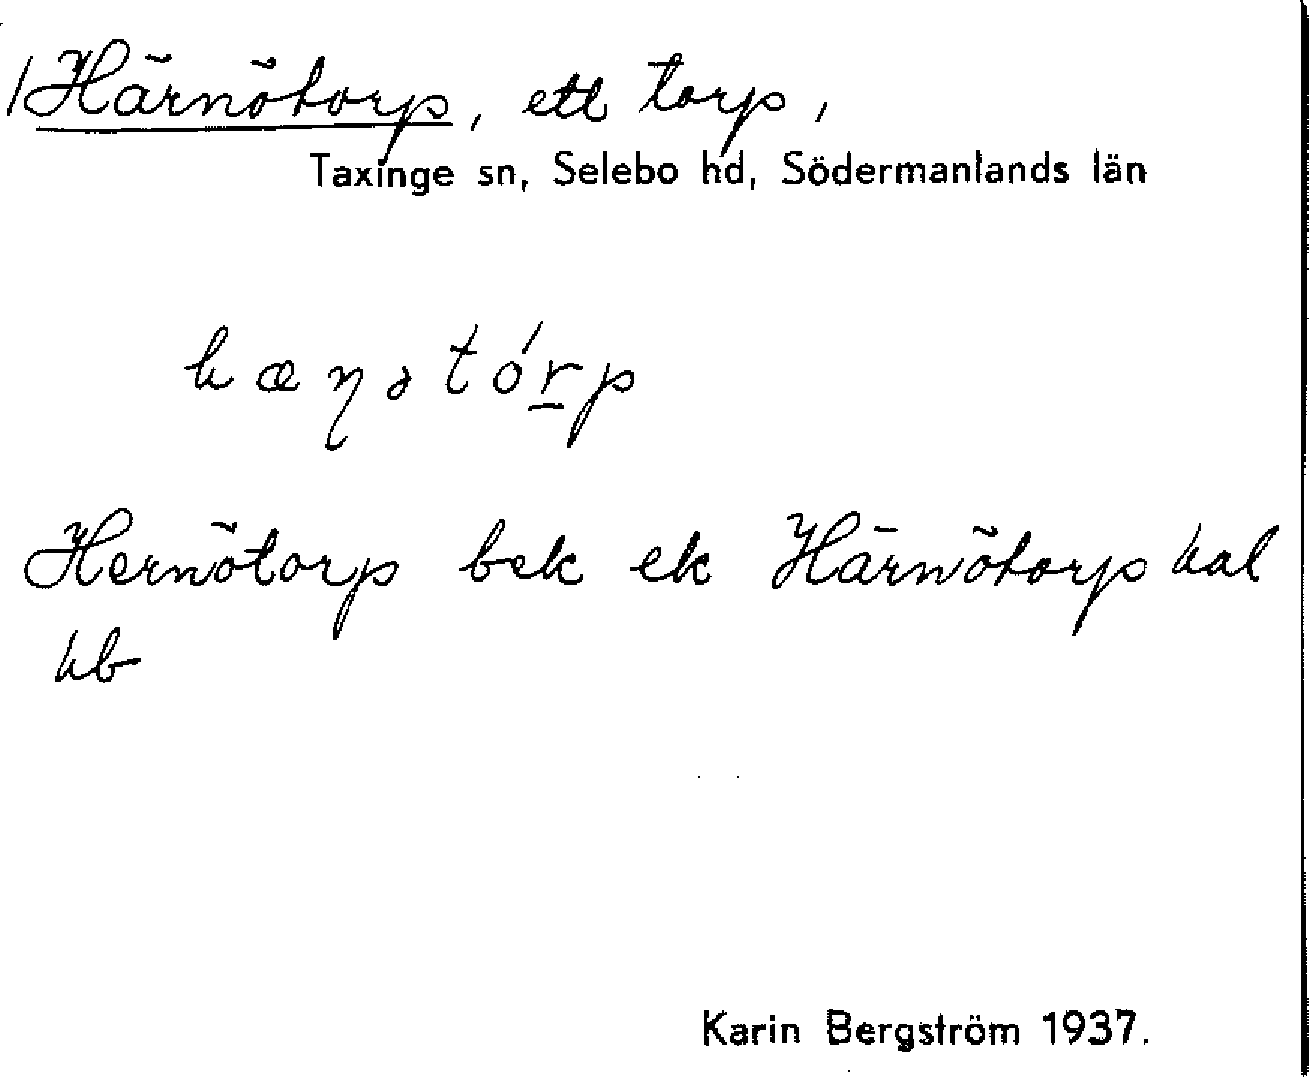 /Härnötorp, ett torp,
Taxinge sn, Selebo hd, Södermanlands län
hæṇətórp
Hernötorp bek ek Härnötorp hal
hb
Karin Bergström 1937.